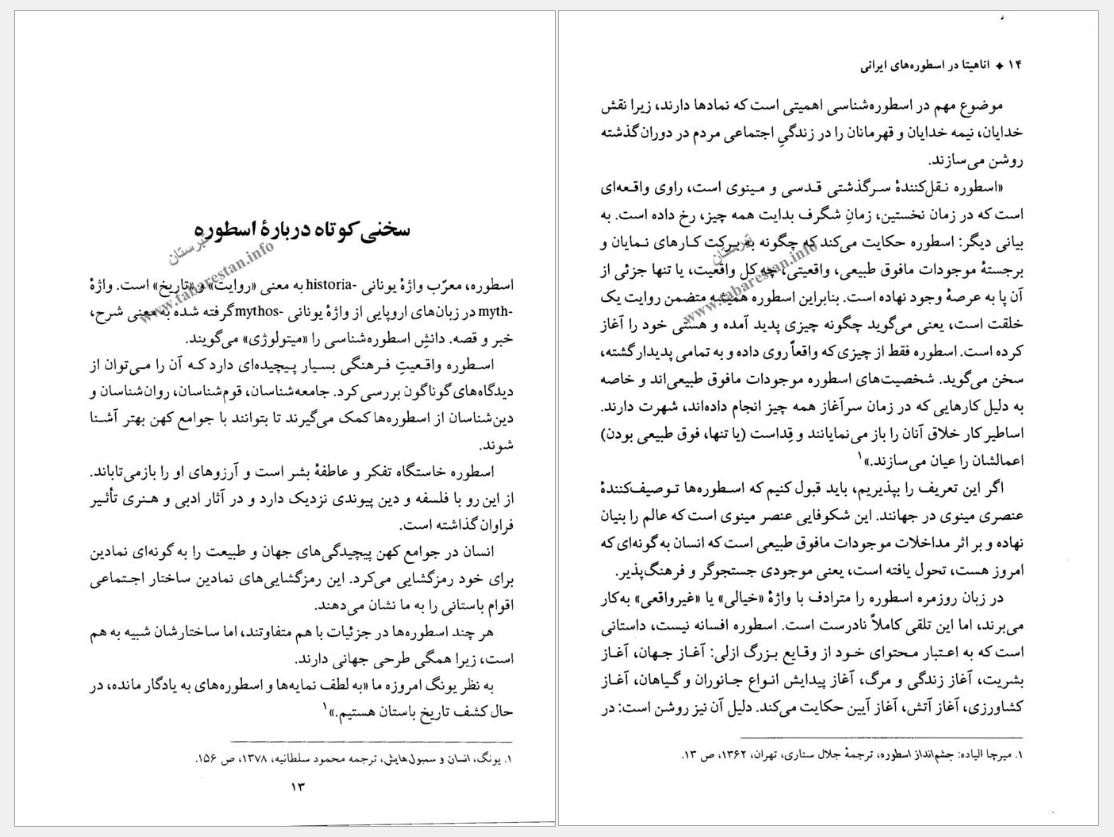 سخنی کوتاه دربارهٔ اسطوره
اسطوره، معرّب واژهٔ یونانی historia- به معنی «روایت» و «تاریخ» است. واژهٔ
myth- در زبان‌های اروپایی از واژهٔ یونانی mythos- گرفته شده به معنی شرح،
خبر و قصه. دانشِ اسطوره‌شناسی را «میتولوژی» می‌گویند.
اسطوره واقعیتِ فرهنگی بسیار پیچیده‌ای دارد که آن را می‌توان از
دیدگاه‌های گوناگون بررسی کرد. جامعه‌شناسان، قوم‌شناسان، روان‌شناسان و
دین‌شناسان از اسطوره‌ها کمک می‌گیرند تا بتوانند با جوامع کهن بهتر آشنا
شوند.
اسطوره خاستگاه تفکر و عاطفهٔ بشر است و آرزوهای او را بازمی‌تاباند.
از این رو با فلسفه و دین پیوندی نزدیک دارد و در آثار ادبی و هنری تأثیر
فراوان گذاشته است.
انسان در جوامع کهن پیچیدگی‌های جهان و طبیعت را به گونه‌ای نمادین
برای خود رمزگشایی می‌کرد. این رمزگشایی‌های نمادین ساختار اجتماعی
اقوام باستانی را به ما نشان می‌دهند.
هر چند اسطوره‌ها در جزئیات با هم متفاوتند، اما ساختارشان شبیه به هم
است، زیرا همگی طرحی جهانی دارند.
به نظر یونگ امروزه ما «به لطف نمایه‌ها و اسطوره‌های به یادگار مانده، در
حال کشف تاریخ باستان هستیم.»۱
۱. یونگ، انسان و سمبول‌هایش، ترجمه محمود سلطانیه، ۱۳۷۸، ص ۱۵۶.
۱۳
تبرستان
www.tabarestan.info
۱۴ ◆ اناهیتا در اسطوره‌های ایرانی
موضوع مهم در اسطوره‌شناسی اهمیتی است که نمادها دارند، زیرا نقش
خدایان، نیمه خدایان و قهرمانان را در زندگیِ اجتماعی مردم در دوران گذشته
روشن می‌سازند.
«اسطوره نقل‌کنندهٔ سرگذشتی قدسی و مینوی است، راوی واقعه‌ای
است که در زمان نخستین، زمانِ شگرف بدایت همه چیز، رخ داده است. به
بیانی دیگر: اسطوره حکایت می‌کند که چگونه به برکت کارهای نمایان و
برجستهٔ موجودات مافوق طبیعی، واقعیتی، چه کل واقعیت، یا تنها جزئی از
آن پا به عرصهٔ وجود نهاده است. بنابراین اسطوره همیشه متضمن روایت یک
خلقت است، یعنی می‌گوید چگونه چیزی پدید آمده و هستی خود را آغاز
کرده است. اسطوره فقط از چیزی که واقعاً روی داده و به تمامی پدیدار گشته،
سخن می‌گوید. شخصیت‌های اسطوره موجودات مافوق طبیعی‌اند و خاصه
به دلیل کارهایی که در زمان سرآغاز همه چیز انجام داده‌اند، شهرت دارند.
اساطیر کار خلاق آنان را باز می‌نمایانند و قِداست (یا تنها، فوق طبیعی بودن)
اعمالشان را عیان می‌سازند.»۱
اگر این تعریف را بپذیریم، باید قبول کنیم که اسطوره‌ها توصیف‌کنندهٔ
عنصری مینوی در جهانند. این شکوفایی عنصر مینوی است که عالم را بنیان
نهاده و بر اثر مداخلات موجودات مافوق طبیعی است که انسان به گونه‌ای که
امروز هست، تحول یافته است، یعنی موجودی جستجوگر و فرهنگ‌پذیر.
در زبان روزمره اسطوره را مترادف با واژهٔ «خیالی» یا «غیرواقعی» به‌کار
می‌برند، اما این تلقی کاملاً نادرست است. اسطوره افسانه نیست، داستانی
است که به اعتبار محتوای خود از وقایع بزرگ ازلی: آغاز جهان، آغاز
بشریت، آغاز زندگی و مرگ، آغاز پیدایش انواع جانوران و گیاهان، آغاز
کشاورزی، آغاز آتش، آغاز آیین حکایت می‌کند. دلیل آن نیز روشن است: در
۱. میرچا الیاده: چشم‌انداز اسطوره، ترجمهٔ جلال ستاری، تهران، ۱۳۶۲، ص ۱۳.
تبرستان
www.tabarestan.info